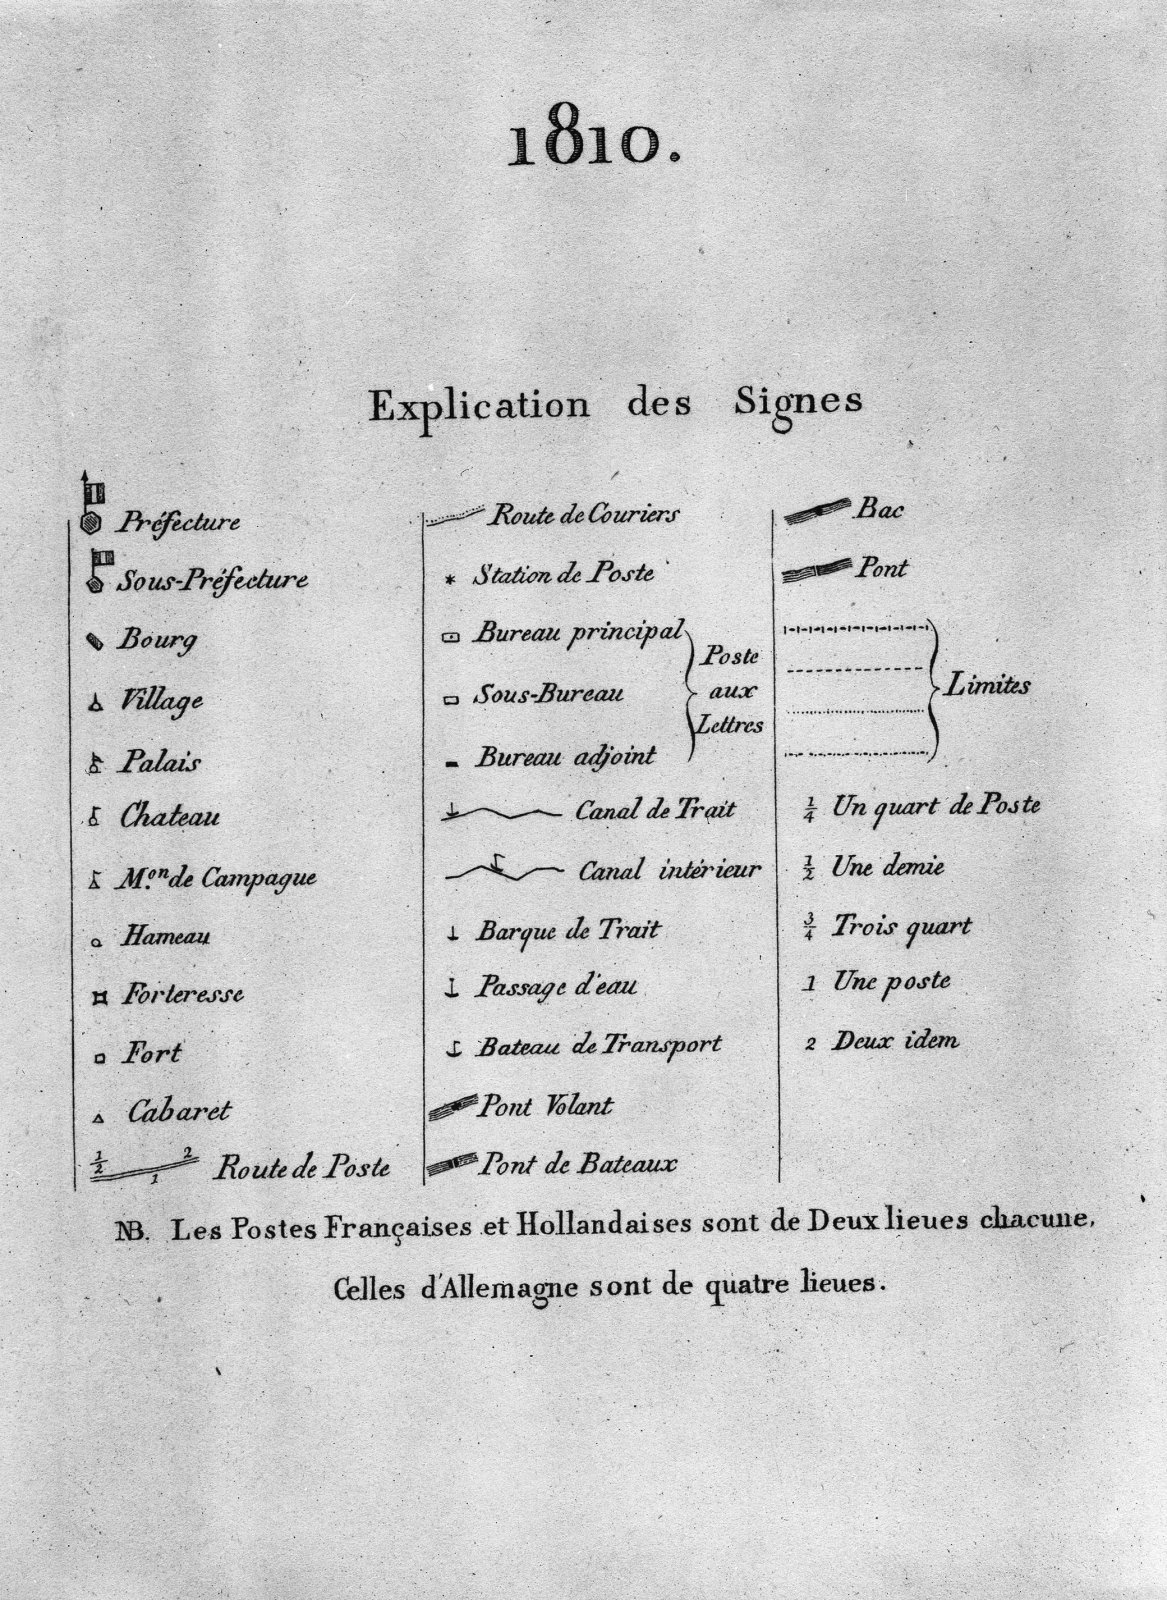 1810.
Explication des Signes
Préfecture
Sous-Préfecture
Bourg
Village
Palais
Chateau
M.on de Campague
Hameau
Forteresse
Fort
Cabaret
1/2 1 2 Route de Poste
Route de Couriers
Station de Poste
Bureau principal
Sous-Bureau
Bureau adjoint
Poste
aux
Lettres
Canal de Trait
Canal intérieur
Barque de Trait
Passage d'eau
Bateau de Transport
Pont Volant
Pont de Bateaux
Bac
Pont
Limites
1/4 Un quart de Poste
1/2 Une demie
3/4 Trois quart
1 Une poste
2 Deux idem
NB. Les Postes Françaises et Hollandaises sont de Deux lieues chacune,
Celles d'Allemagne sont de quatre lieues.